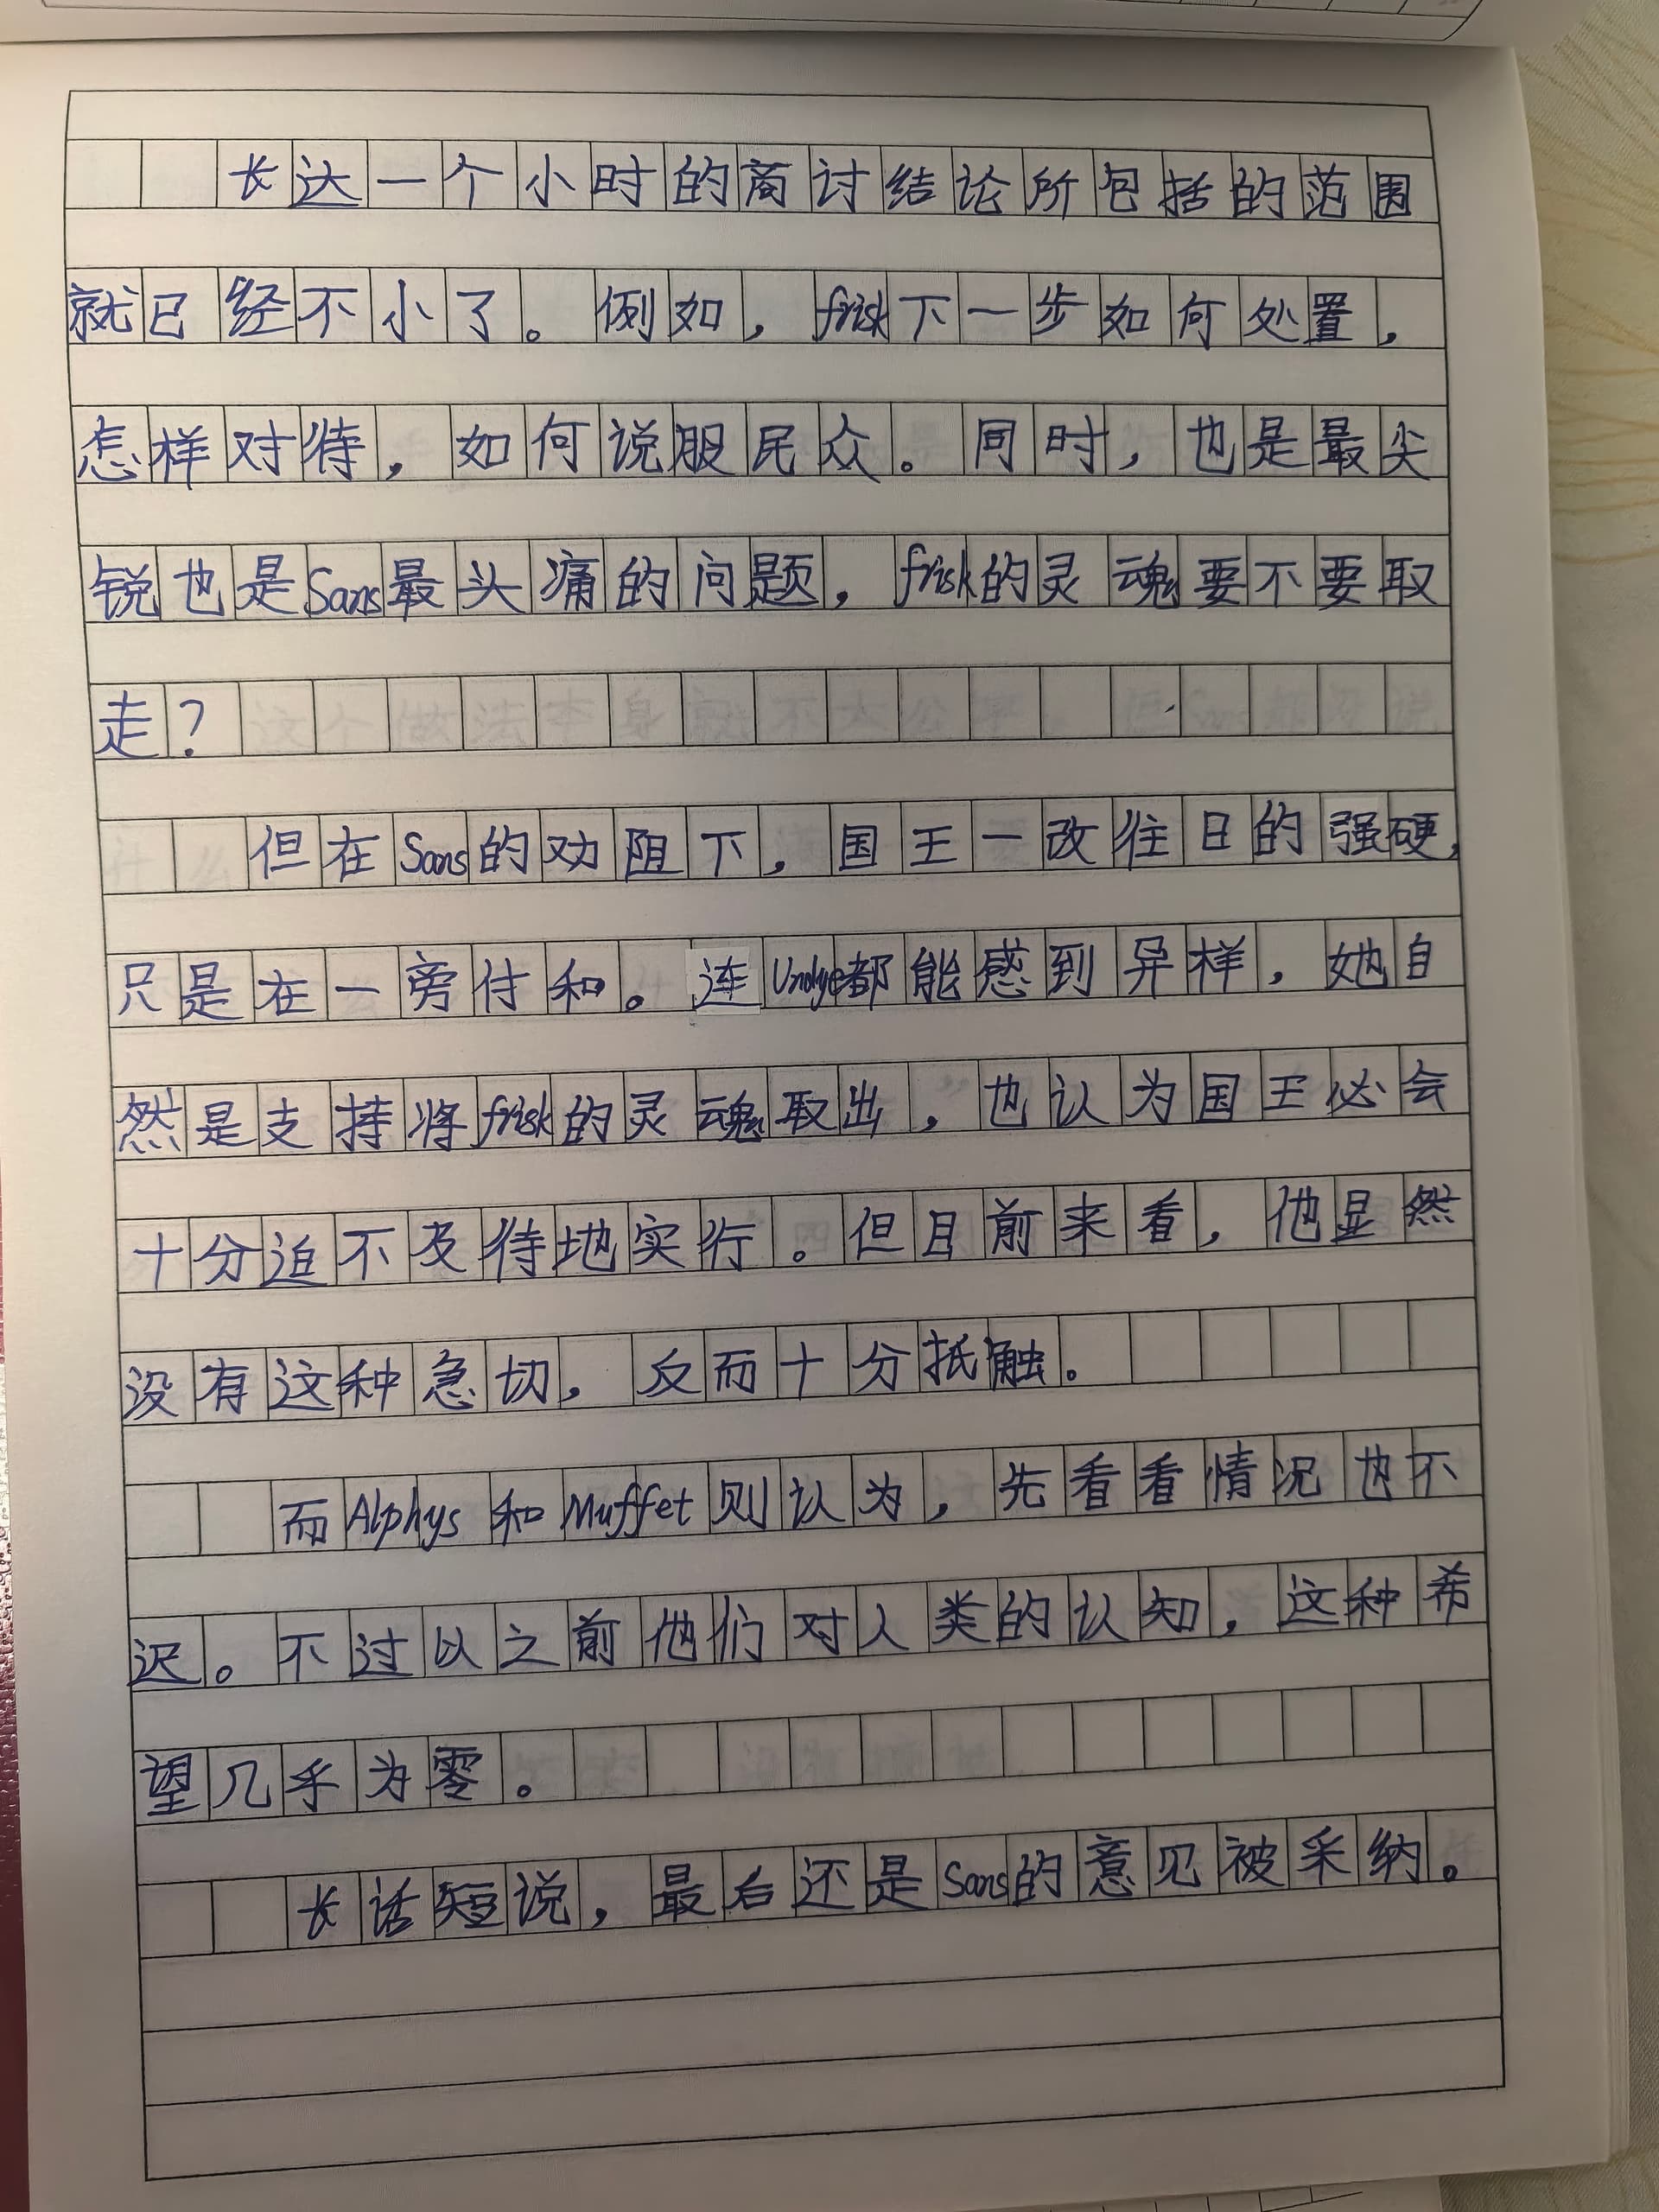 长达一个小时的商讨结论所包括的范围
就已经不小了。例如，frisk下一步如何处置，
怎样对待，如何说服民众。同时，也是最尖
锐也是Sans最头痛的问题，frisk的灵魂要不要取
走？
但在Sans的劝阻下，国王一改往日的强硬，
只是在一旁付和。连Undyne都能感到异样，她自
然是支持将frisk的灵魂取出，也认为国王必会
十分迫不及待地实行。但目前来看，他显然
没有这种急切，反而十分抵触。
而Alphys和Muffet则认为，先看看情况也不
迟。不过以之前他们对人类的认知，这种希
望几乎为零。
长话短说，最后还是Sans的意见被采纳。